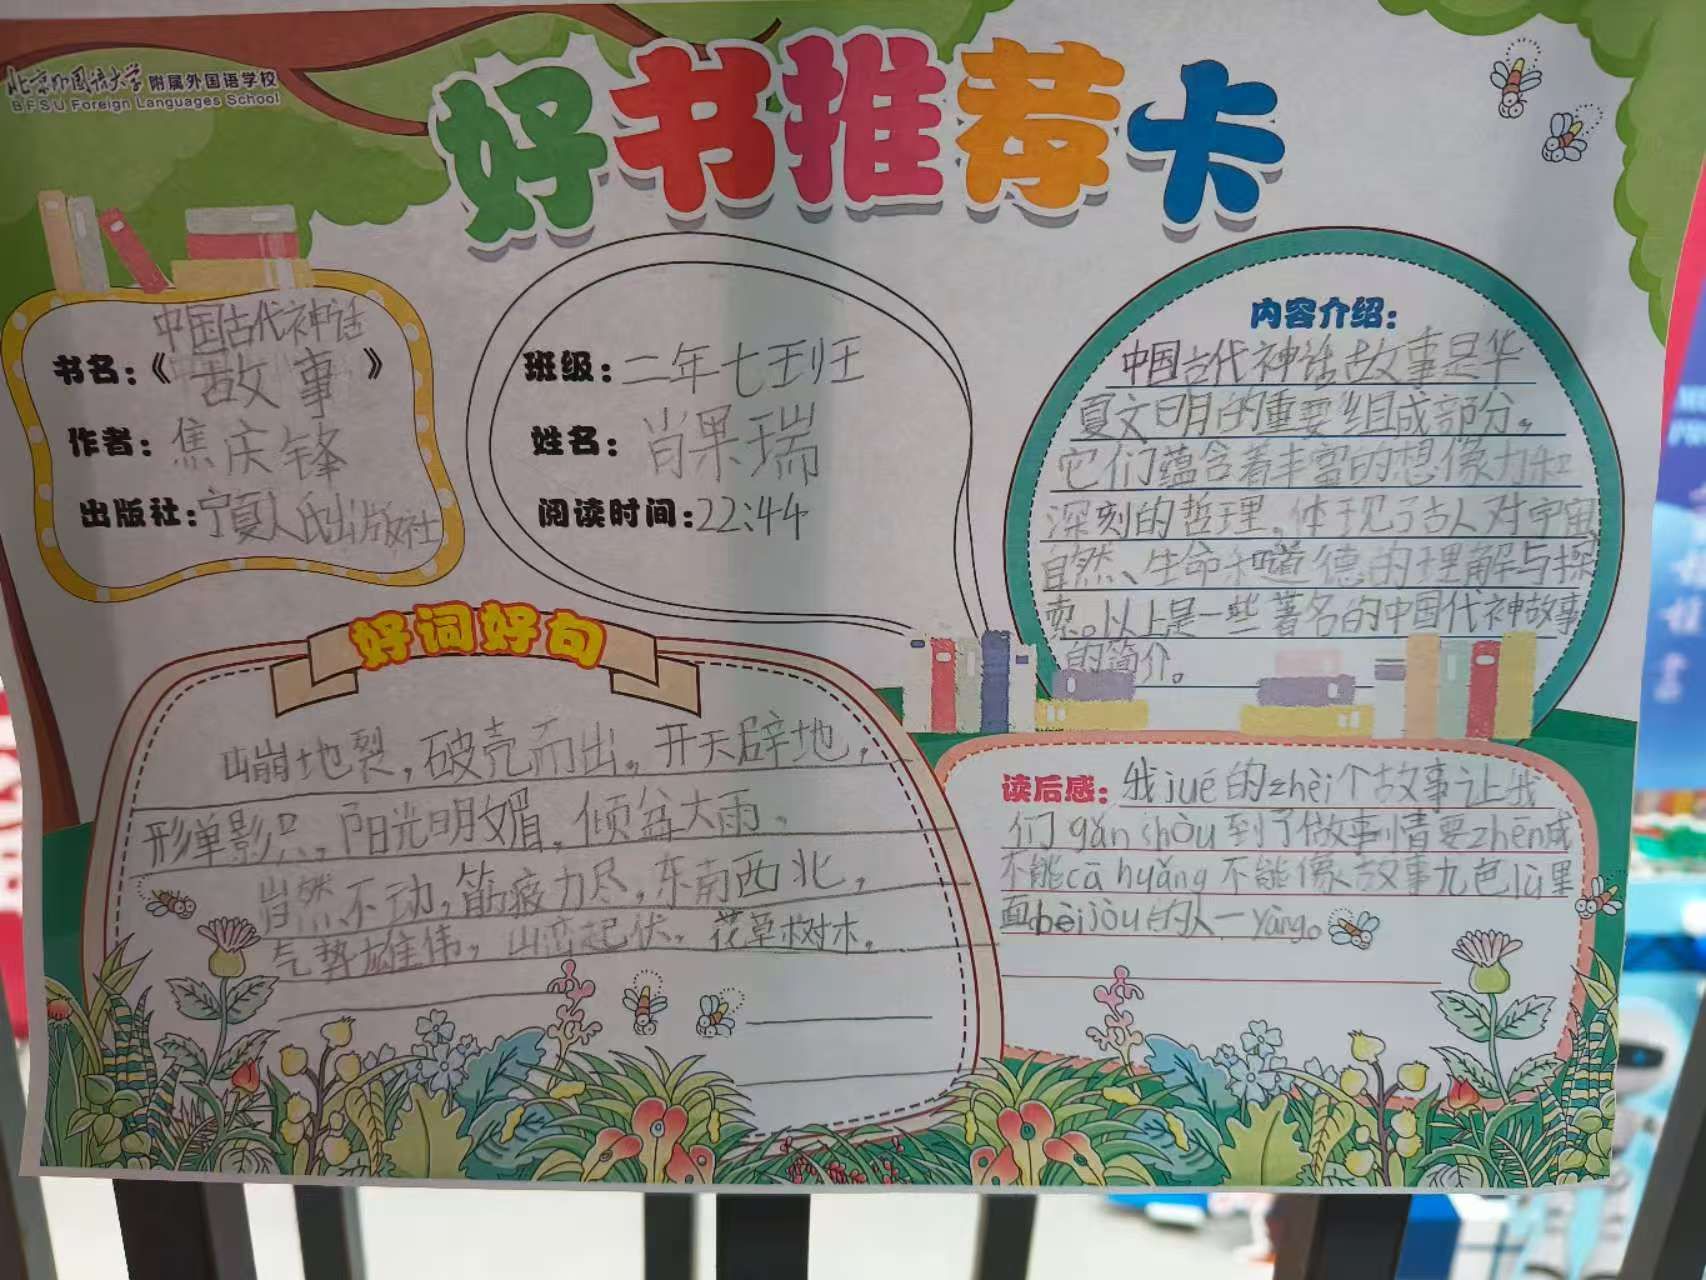 北京外国语大学 附属外国语学校
BFSU Foreign Languages School
好书推荐卡
中国古代神话
书名：《故事》
作者：焦庆锋
出版社：宁夏人民出版社
班级：二年七班
姓名：肖果瑞
阅读时间：22:44
内容介绍：
中国古代神话故事是华
夏文明的重要组成部分。
它们蕴含着丰富的想像力和
深刻的哲理，体现了古人对宇宙
自然、生命和道德的理解与探
索。以上是一些著名的中国代神故事
的简介。
好词好句
山崩地裂，破壳而出。开天辟地，
形单影只，阳光明媚。倾盆大雨。
岿然不动，筋疲力尽，东南西北，
气势雄伟。山峦起伏。花草树木。
读后感：我jué的zhèi个故事让我
们gǎn shòu到了做事情要zhēn成
不能cā huǎng不能像故事九色lù里
面bèi jòu的人一yàng。